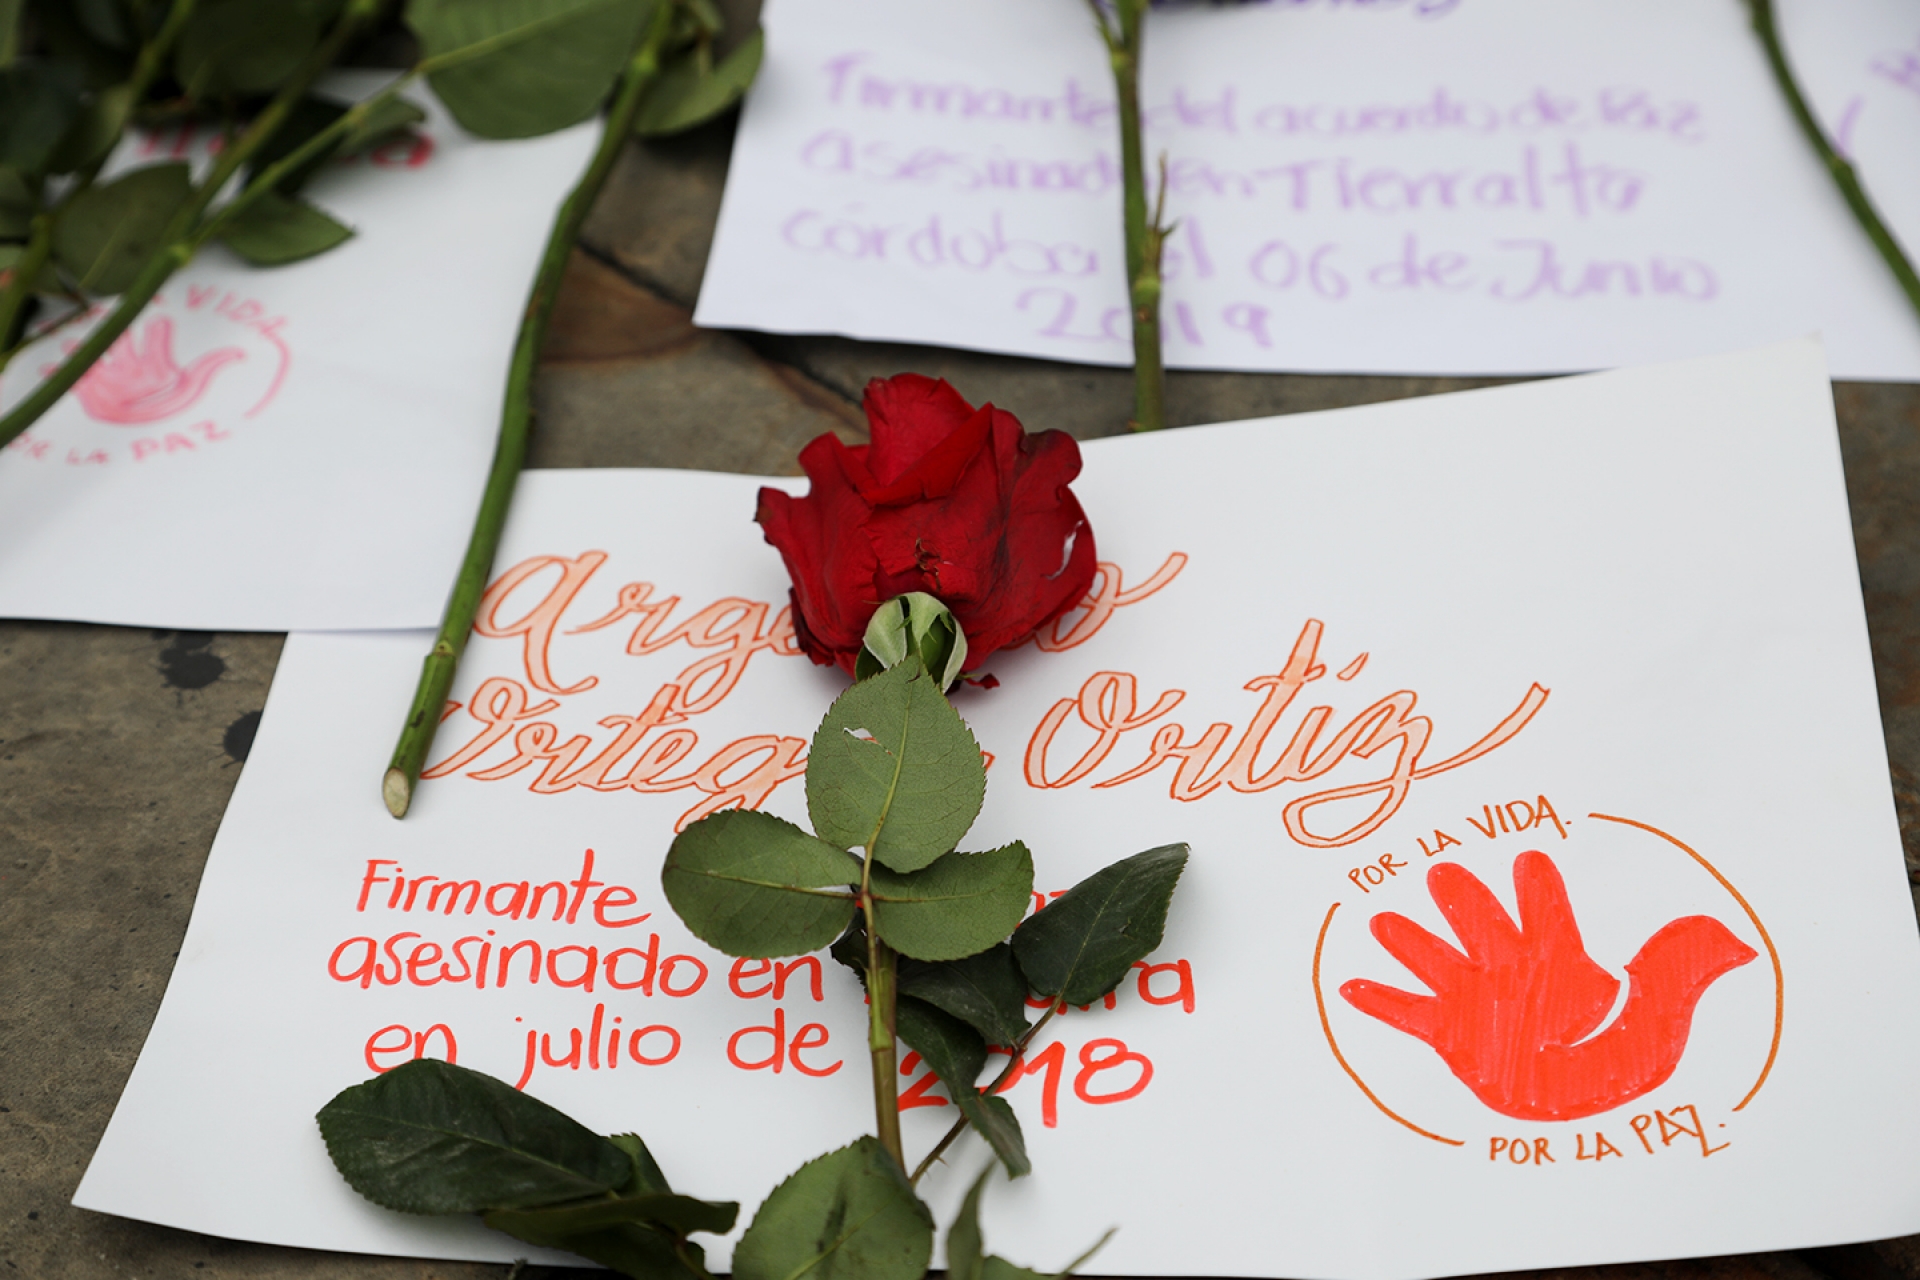 Firmante del acuerdo de Paz
asesinado en Tierralta
córdoba el 06 de Junio
2019
VIDA
POR LA PAZ
Ortiz
Firmante
asesinado en
en julio de 2018
POR LA VIDA.
POR LA PAZ.